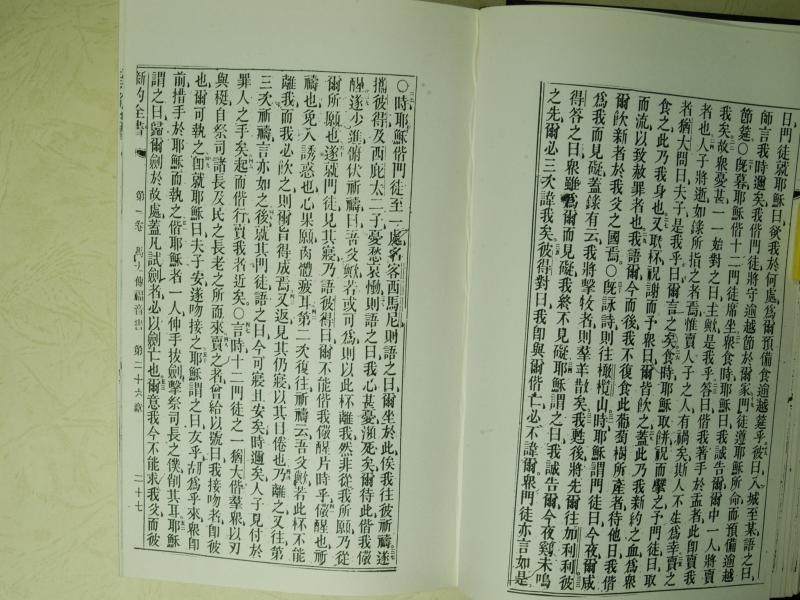 日門徒就耶穌曰欲我於何處爲爾預備食逾越筵乎彼曰入城至某語之曰
師言我時邇矣我偕門徒將守逾越節於爾家門徒遵耶穌所命而預備逾越
節筵○既暮耶穌偕十二門徒席坐衆食時耶穌曰我誠告爾爾中一人將賣
我矣故衆憂甚一一始對之曰主歟是我乎答曰偕我著手於盂者此即賣我
者也人子將逝如錄所指之者焉惟賣人子之人有禍矣斯人不生爲幸賣之
者猶大問曰夫子是我乎曰爾言之矣食時耶穌取餅祝而擘之予門徒曰取
食之此乃我身也又取杯祝謝而予衆曰爾皆飲之蓋此乃我新約之血爲衆
而流以致赦罪者也我語爾今而後我不復食此葡萄樹所產者待他日我偕
爾飲新者於我父之國焉○既詠詩則往橄欖山時耶穌謂門徒曰今夜爾咸
爲我而見礙蓋錄有云我將擊牧者則羣羊散矣我甦後將先爾往加利利彼
得答之曰衆雖爲爾而見礙我終不見礙耶穌謂之曰我誠告爾今夜雞未鳴
之先爾必三次諱我矣彼得對曰我即與爾偕亡必不諱爾衆門徒亦言如是
○時耶穌偕門徒至一處名客西馬尼則語之曰爾坐於此俟我往彼祈禱遂
攜彼得及西庇太二子憂愁哀慟則語之曰我心甚憂瀕死矣爾待此偕我儆
醒遂少進俯伏祈禱曰吾父歟若或可爲則以此杯離我然非從我所願乃從
爾所願也遂就門徒見其寢乃語彼得曰爾不能偕我儆醒片時乎儆醒也祈
禱也免入誘惑也心果願肉體疲耳第二次復往祈禱云吾父歟若此杯不能
離我而我必飲之則爾旨得成焉又返見其仍寢以其目倦也乃離之又往第
三次祈禱言亦如之後就其門徒語之曰今可寢且安矣時邇矣人子見付於
罪人之手矣起而偕行賣我者近矣○言時十二門徒之一猶大偕羣衆以刃
與梃自祭司諸長及民之長老之所而來賣之者曾給以號曰我接吻者即彼
也爾可執之即就耶穌曰夫子安遂吻接之耶穌謂之曰友乎胡爲乎來衆即
前措手於耶穌而執之偕耶穌者一人伸手拔劍擊祭司長之僕削其耳耶穌
謂之曰歸爾劍於故處蓋凡試劍者必以劍亡也爾意我今不能求我父而彼
新約全書 第一卷 馬太傳福音書 第二十六章 二十七